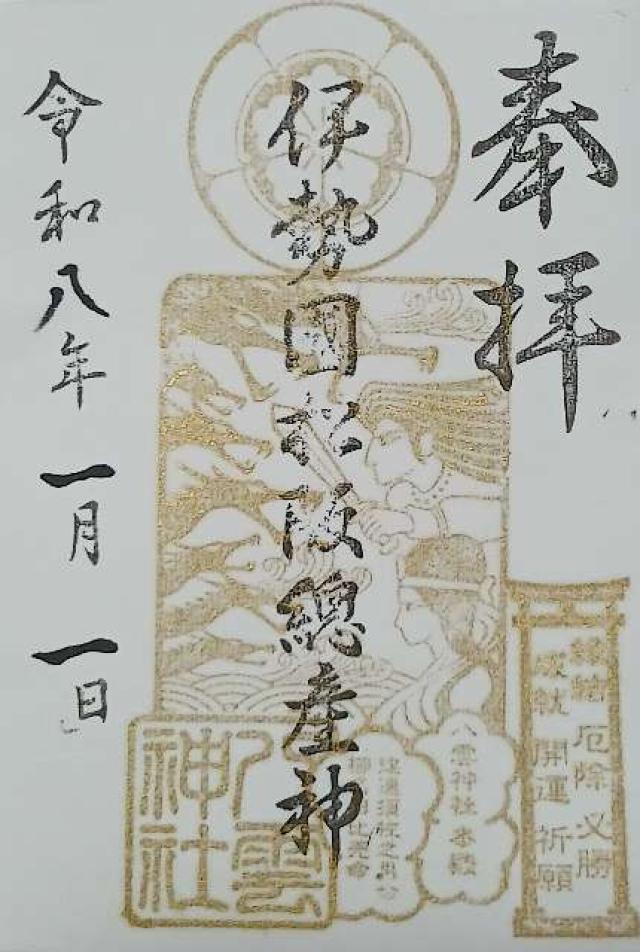 奉拝
伊勢國松阪總産神
令和八年一月一日
縁結 厄除 必勝
成就 開運 祈願
八雲神社本殿
建速須佐之男命
櫛名田比売命
八雲
神社